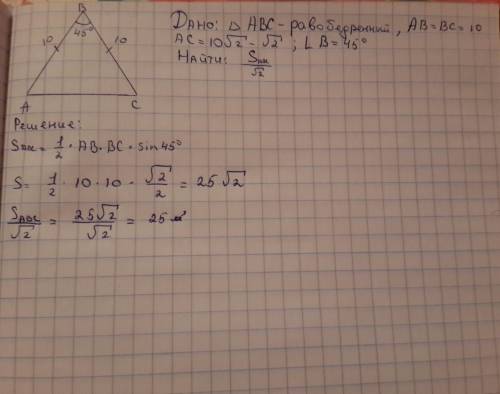 B
45°
10
10
A
C
Дано: △ ABC - равобедренний, AB=BC=10
AC=10√2-√2 ; ∟B=45°
Найти: S/√2
Решение:
S = 1/2 · AB · BC · sin 45°
S = 1/2 · 10 · 10 · √2/2 = 25√2
S_ABC/√2 = 25√2/√2 = 25